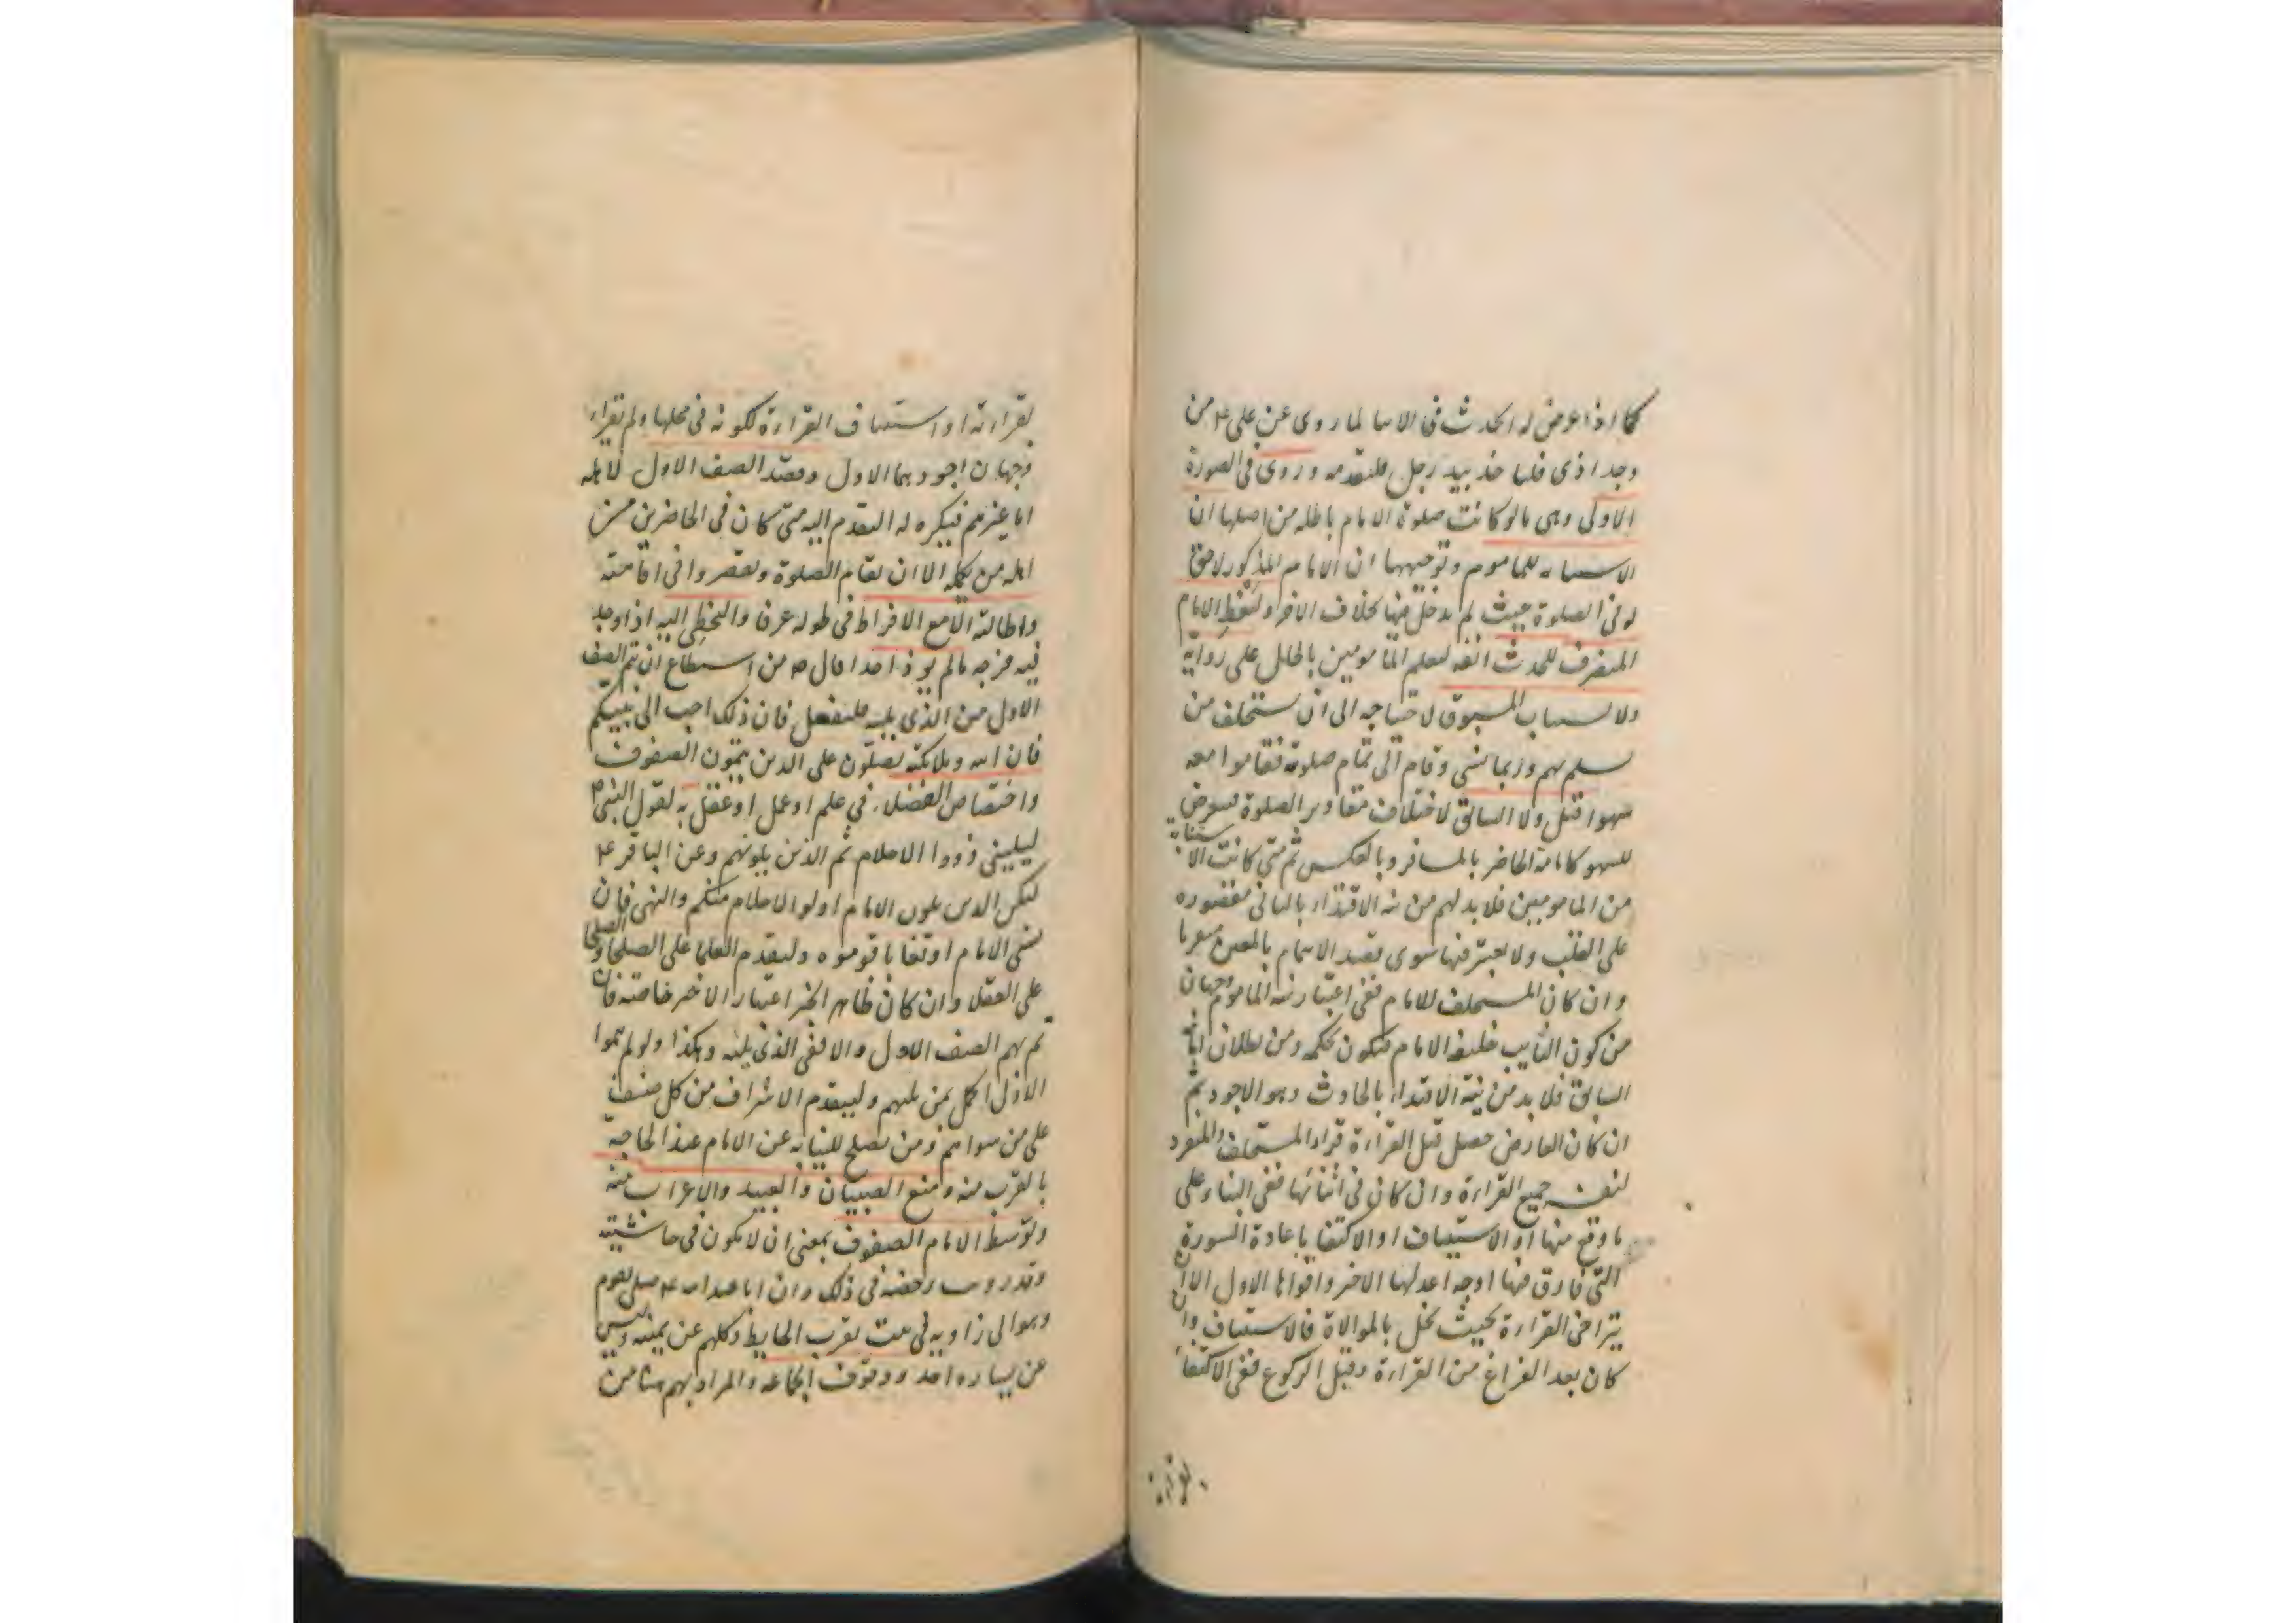 كما اذا عرض له الحدث فى الاسا لما روى عن على ع من
وجد اذى فلياخذ بيد رجل فليقدمه وروى فى الصورة
الاولى وهى ما لو كانت صلوة الامام باطله من اصلها ان
الاستنابه للماموم وتوجيهها ان الامام المذكور لاحق
له فى الصلوة حيث لم يدخل فيها بخلاف الاخر وليغط الامام
المنصرف للحدث انفه ليعلم المامومين بالحال على رواية
ولا يستناب المسبوق لاحتياجه الى ان يستخلف من
يسلم بهم وربما نسى وقام الى تمام صلوته فقاموا معه
سهوا قيل ولا السابق لاختلاف مقادير الصلوة فيعرض
للسهو كامامة الحاضر بالمسافر وبالعكس ثم متى كانت الاستنابة
من المامومين فلا بد لهم من نية الاقتداء بالثانى مقصوره
على القلب ولا يعتبر فيها سوى قصد الايتمام بالمعين
وان كان المستخلف للامام ففى اعتبار نية الماموم وجهان
من كون النايب خليفة الامام فيكون بحكمه ومن بطلان امامة
السابق فلا بد من نية الاقتداء بالحادث وهو الاجود ثم
ان كان العارض حصل قبل القراءة قراء المستخلف او المنفرد
لنفسه جميع القراءة وان كان فى اثنائها ففى البناء على
ما وقع منها او الاستيناف او الاكتفا باعادة السورة
التى فارق فيها اوجه اعدلها الاخر واقواها الاول الا ان
يتراخى القراءة بحيث يخل بالموالاة فالاستيناف وان
كان بعد الفراغ من القراءة وقبل الركوع ففى الاكتفا
بقراءته
بقراءته او استيناف القراءة لكونه فى محلها ولم يقراء
وجهان اجودهما الاول وقصد الصف الاول لاهله
اما غيرهم فيكره له التقدم اليه متى كان فى الحاضرين من
اهله من يكمله الا ان تقام الصلوة ويقصروا فى اقامته
واطالته الا مع الافراط فى طوله عرفا والتخطى اليه اذا وجد
فيه فرجه ما لم يوذ احدا قال ص من استطاع ان يتم الصف
الاول من الذى يليه فليفعل فان ذلك احب الى نبيكم
فان الله وملائكته يصلون على الذين يتمون الصفوف
واختصاص الفضلاء فى علم او عمل او عقل به لقول النبى ص
ليلينى ذووا الاحلام ثم الذين يلونهم وعن الباقر ع
ليكن الذين يلون الامام اولو الاحلام منكم والنهى فان
نسى الامام او تعايا قوموه وليقدم العلما على الصلحا والصلحا
على العقلا وان كان ظاهر الخبر اعتبار الاخير خاصة فان
تم بهم الصف الاول والا ففى الذى يليه وهكذا ولو لم يتموا
الاول اكمل بمن يليهم وليقدم الاشراف من كل صنف
على من سواهم ومن يصلح للنيابه عن الامام عند الحاجة
بالقرب منه ومنع الصبيان والعبيد والاعراب منه
وتوسط الامام الصفوف بمعنى ان لا يكون فى حاشيته
وقد رويت رخصه فى ذلك وان ابا عبد الله ع صلى بقوم
وهو الى زاويه فى بيت بقرب الحايط وكلهم عن يمينه وليس
عن يساره احد ووقوف الجماعه والمراد بهم هنا من